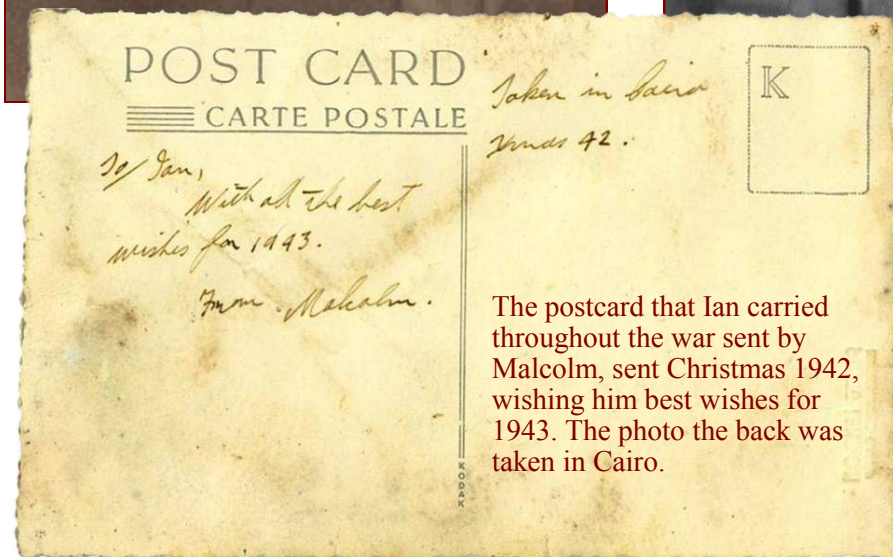 POST CARD
CARTE POSTALE
To/ Ian,
With all the best
wishes for 1943.
From Malcolm.
Taken in Cairo
Xmas 42.
K
The postcard that Ian carried
throughout the war sent by
Malcolm, sent Christmas 1942,
wishing him best wishes for
1943. The photo the back was
taken in Cairo.
KODAK